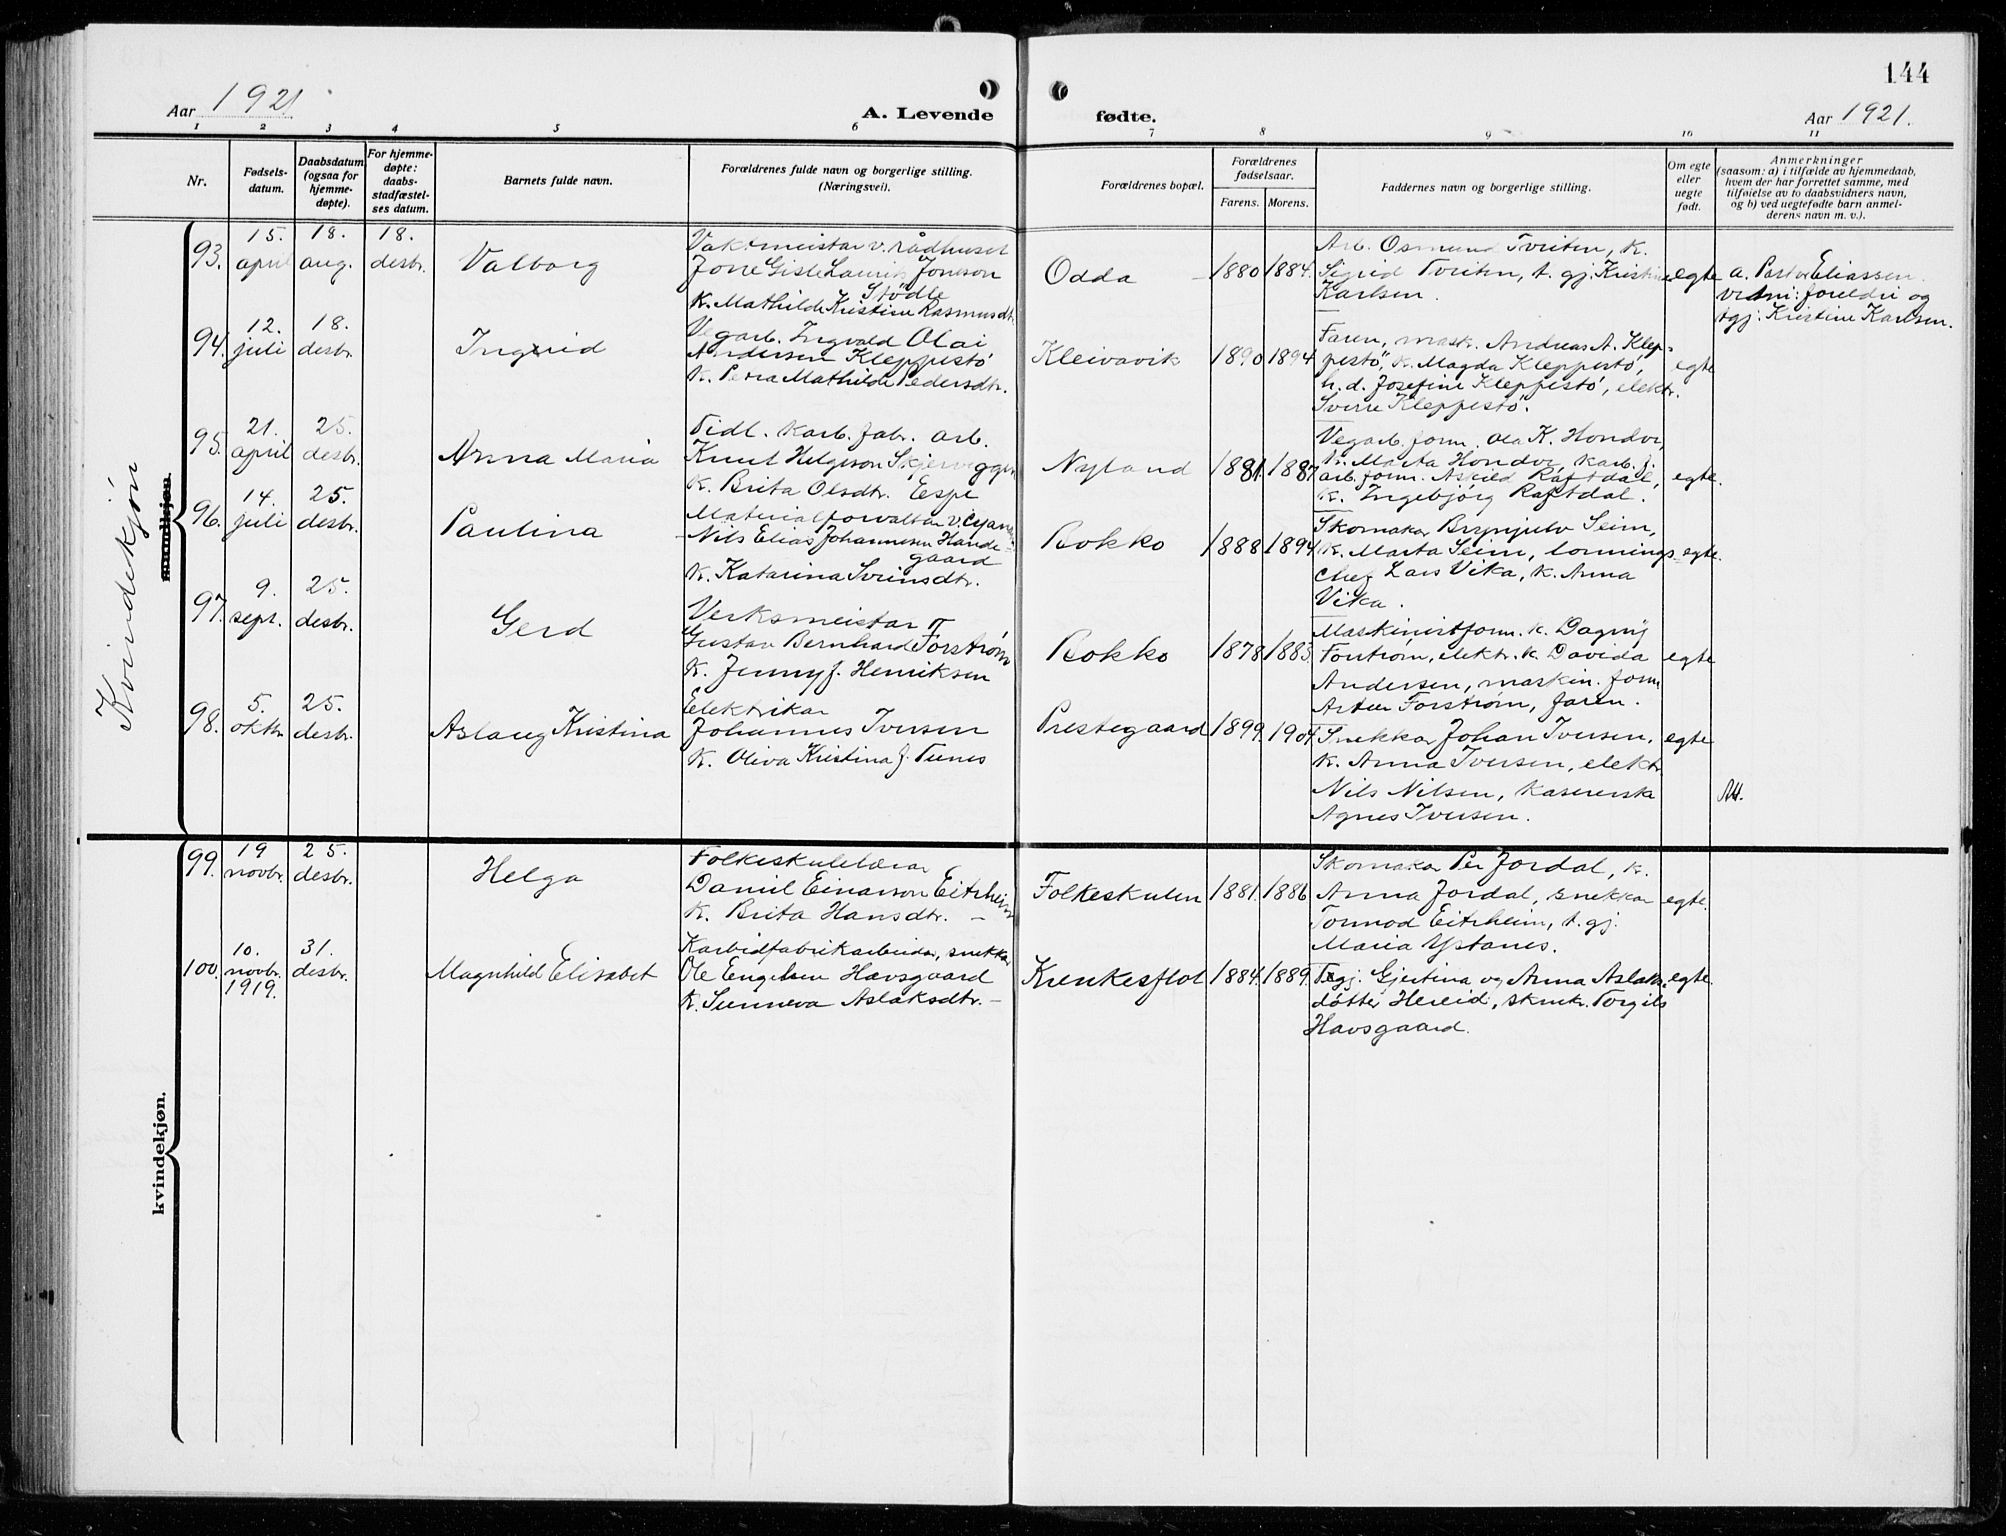 144
Aar 1921
A. Levende
fødte.
Aar 1921.
1 2 3 4 5 6 7 8 9 10 11
Nr.
Fødsels-
datum.
Daabsdatum
(ogsaa for
hjemme-
døpte).
For hjemme-
døpte:
daabs-
stadfæstel-
ses datum.
Barnets fulde navn.
Forældrenes fulde navn og borgerlige stilling.
(Næringsvei).
Forældrenes bopæl.
Forældrenes
fødselsaar.
Farens. Morens.
Faddernes navn og borgerlige stilling.
Om egte
eller
uegte
født.
Anmerkninger
(saasom: a) i tilfælde av hjemmedaab,
hvem der har forrettet samme, med
tilføielse av to daabsvidners navn,
og b) ved uegtefødte barn anmel-
derens navn m. v.).
Kvindekjøn
mandkjøn.
93.
15.
april
18.
aug.
18.
desbr.
Valborg
Vaktmeistar v. rådhuset
Jone Gisle Laurits Jonsson
Stødle
K. Mathilde Kristine Rasmusdtr.
Odda
1880 1884.
Arb. Osmund Tveiten, K.
Sigrid Tveiten, t. gj. Kristine
Karlsen.
egte
a. Pastor Eliassen
vitni: foreldri og
tgj: Kristine Karlsen.
94.
12.
juli
18.
desbr.
Ingrid
Vegarb. Ingvald Olai
Andersen Kleppestö
K. Petra Mathilde Pedersdtr.
Kleivavik
1890 1894
Faren, mask. Andreas A. Klep-
pestö, K. Magda Kleppestö,
h. d. Josefine Kleppestö, elektr.
Sverre Kleppestö.
egte
95.
21.
april
25.
desbr.
Anna Maria
Tidl. Karb. fabr. arb.
Knut Helgeson Skjerveggen
K. Brita Olsdtr. Espe
Nyland
1881. 1887
Vegarb. form. Ola K. Hondve,
K. Marta Hondve, Karb. f.
arb. form. Askild Raftdal,
K. Ingebjörg Raftdal.
egte.
96.
14.
juli
25.
desbr.
Paulina
Materialforvaltar v. Cyana-
Nils Elias Johannesen Hande-
gaard
K. Katarina Sveinsdtr.
Bokko
1888 1894
Skomakar Brynjulv Seim,
K. Marta Seim, lonnings-
chef Lars Vika, K. Anna
Vika.
egte.
97.
9.
sept.
25.
desbr.
Gerd
Verksmeistar
Gustav Bernhard Forstrøm
K. Jenny f. Henriksen
Bokko
1878 1883
Maskinistform. K. Dagny
Forstrøm, elektr. K. Davida
Andersen, maskin. form
Artur Forstrøm, faren.
egte
98.
5.
oktbr
25.
desbr.
Aslaug Kristina
Elektrikar
Johannes Iversen
K. Oliva Kristina f. Tunes
Prestegaard
1899. 1904
Snekkar Johan Iversen,
K. Anna Iversen, elektr.
Nils Nilsen, Kasererska
Agnes Iversen.
egte
kvindekjøn.
99.
19
novbr.
25.
desbr.
Helga
Folkeskulelærar
Daniel Einarson Eitrheim
K. Brita Hansdtr. –
Folkeskulen
1881. 1886
Skomakar Per Jordal, K.
Anna Jordal, snekkar
Tormod Eitrheim, t. gj.
Maria Ystanes.
egte.
100.
10.
novbr.
1919.
31.
desbr.
Magnhild Elisabet
Karbidfabrikarbeidar, snekkar
Ole Engelsen Havsgaard
K. Sunneva Aslaksdtr. –
Krenkesflot
1884. 1889.
Tgj. Gjertina og Anna Aslaks-
døtter Hereid, snekr. Torgils
Havsgaard.
egte.